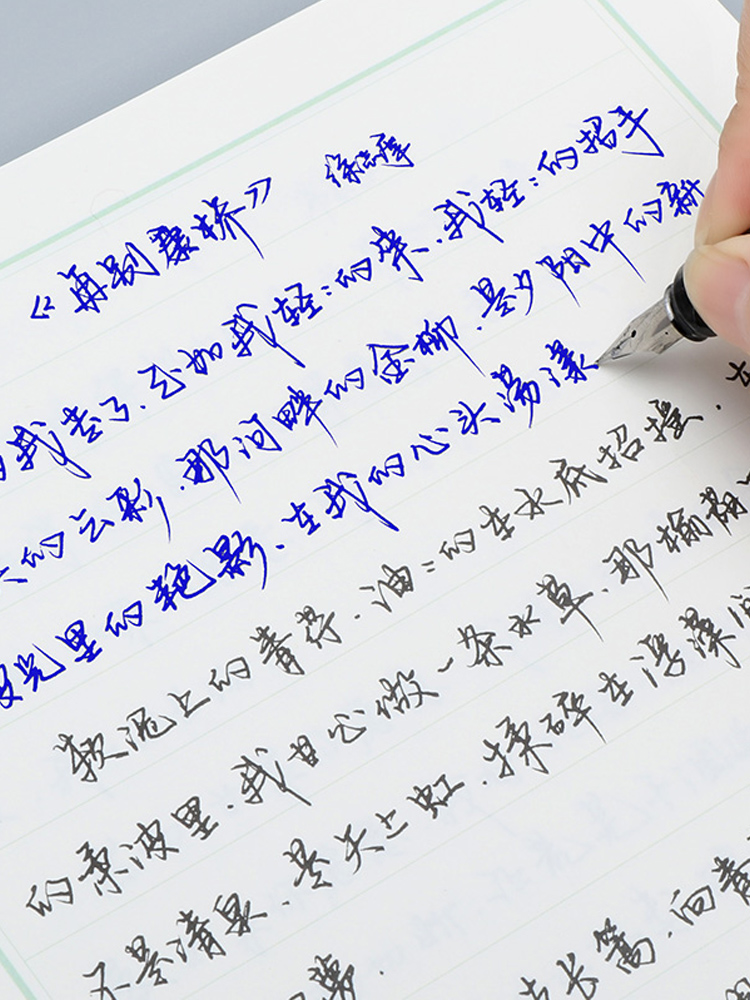 《再别康桥》 徐志摩
的我走了.正如我轻:的来.我轻:的招手
天的云彩.那河畔的金柳.是夕阳中的新
波光里的艳影.在我的心头荡漾
软泥上的青荇.油:的在水底招摇.在
的柔波里.我甘心做一条水草.那榆荫下
不是清泉.是天上虹.揉碎在浮藻间
梦.
长篙.向青